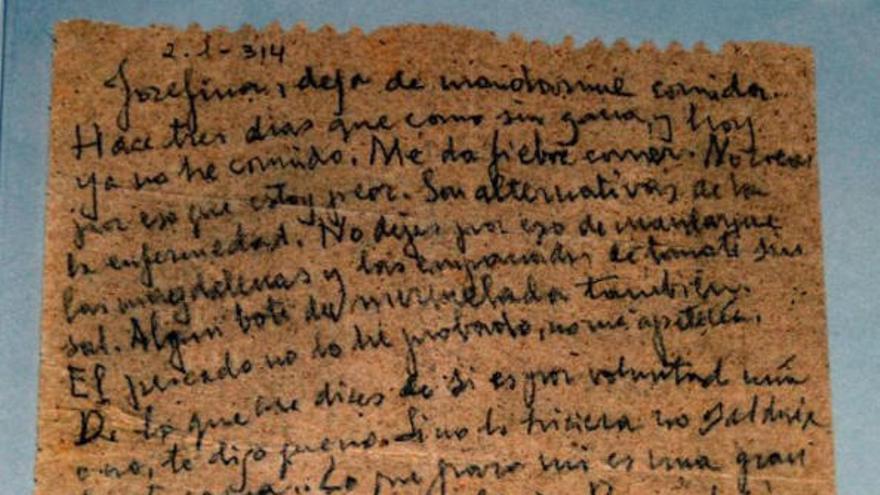 2-1-314
Josefina, deja de mandarme comida.
Hace tres días que como sin gana, y hoy
ya no he comido. Me da fiebre comer. No creas
por eso que estoy peor. Son alternativas de la
la enfermedad. No dejes por eso de mandarme
las magdalenas y las empanadas de tomate sin
sal. Algún bote de mermelada también.
El pescado no lo he probado, no me apetecía.
De lo que me dices de si es por voluntad mía
o no, te digo que no. Si no lo hiciera no saldría
Lo que para mí es una gran